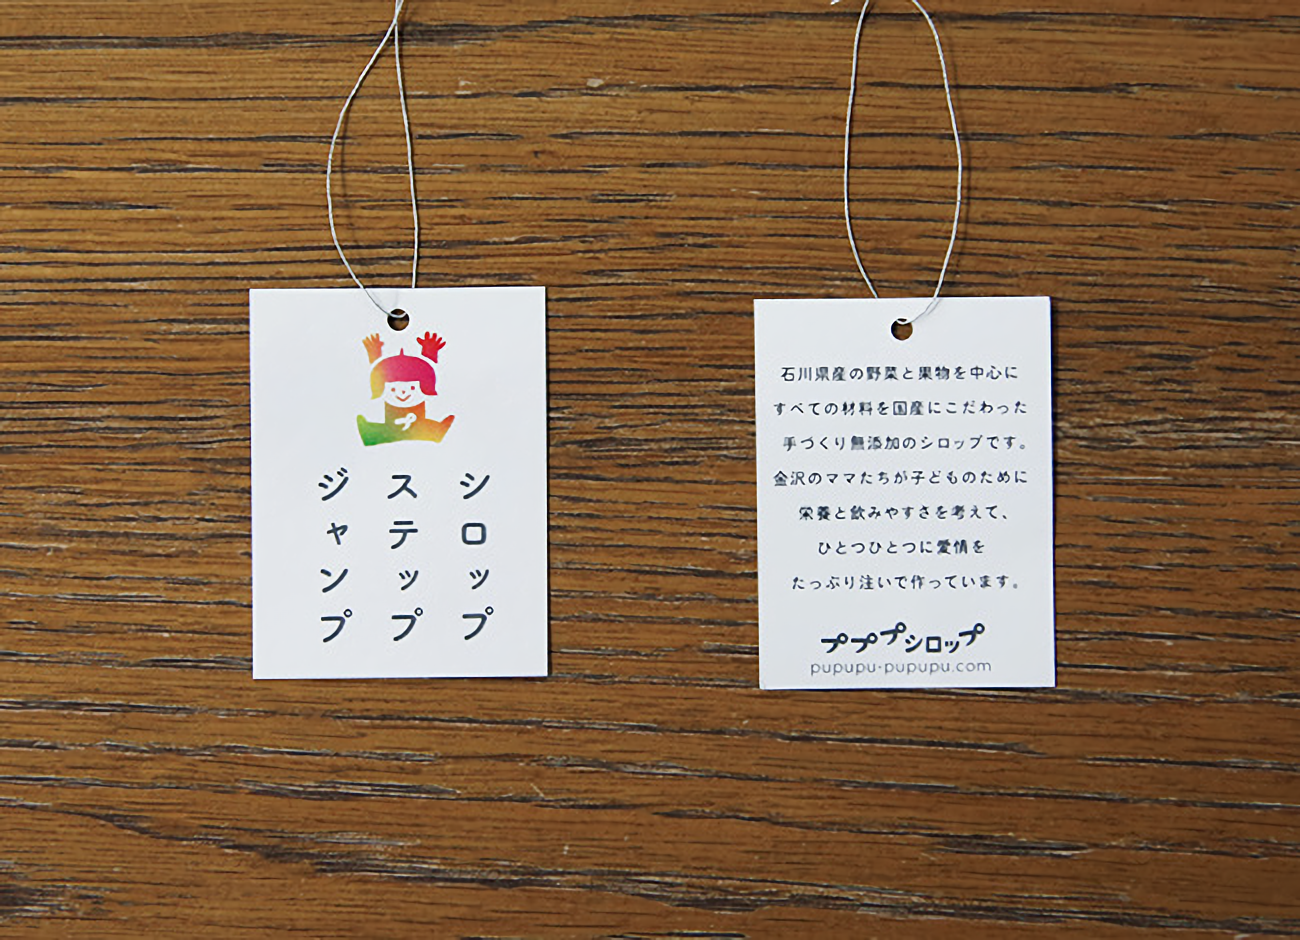 シロップ
ステップ
ジャンプ
石川県産の野菜と果物を中心に
すべての材料を国産にこだわった
手づくり無添加のシロップです。
金沢のママたちが子どものために
栄養と飲みやすさを考えて、
ひとつひとつに愛情を
たっぷり注いで作っています。
プププシロップ
pupupu-pupupu.com